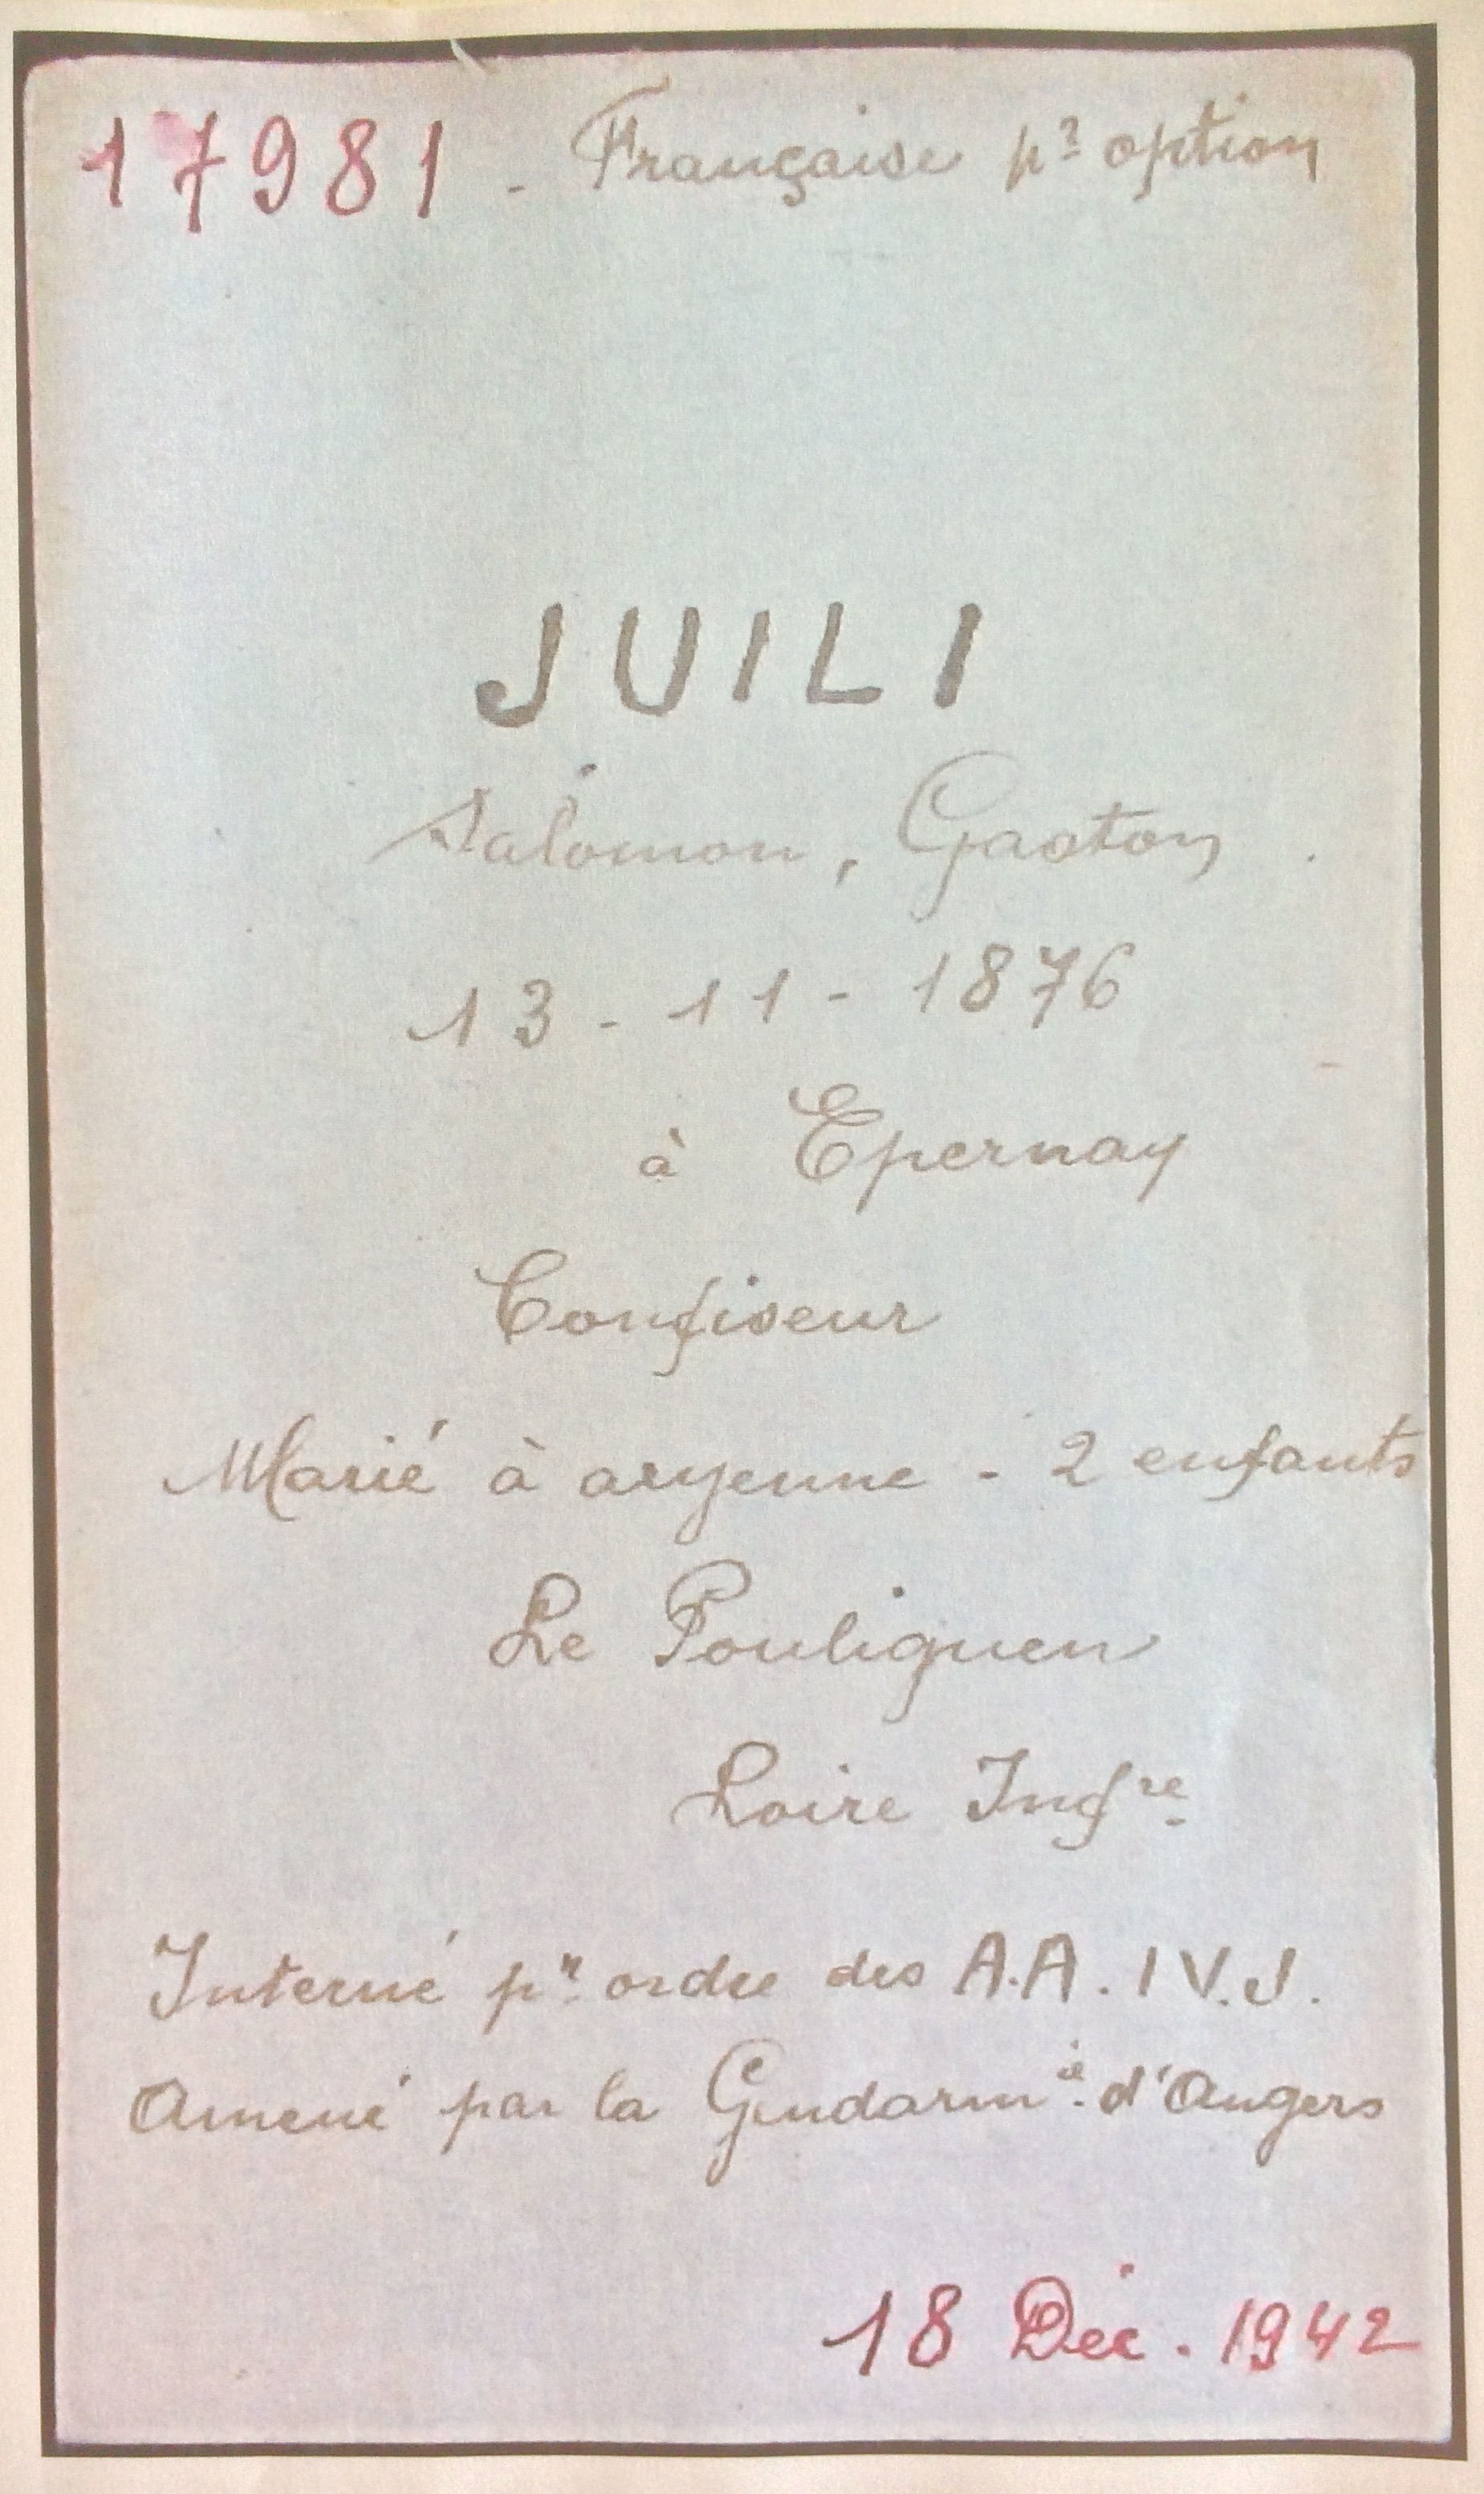 17981 - Française pr option
JUILI
Salomon, Gaston
13 - 11 - 1876
à Epernay
Confiseur
Marié à aryenne - 2 enfants
Le Pouliguen
Loire Infre
Interné pr ordre des A.A. I V.J.
Amené par la Gendarmie d'Angers
18 Déc. 1942